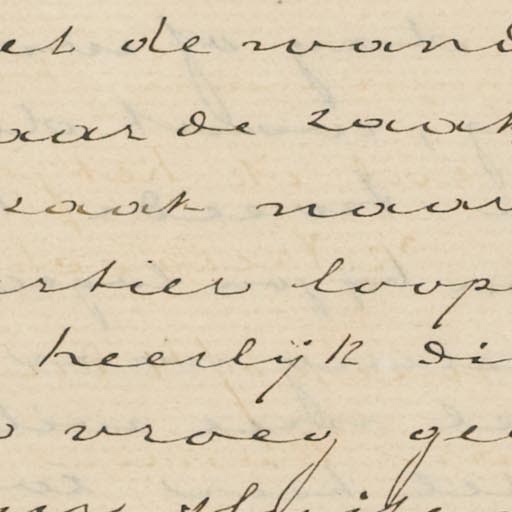 et de wand
aar de zaak
zaak naar
rtier loop
heerlijk di
vroeg ge